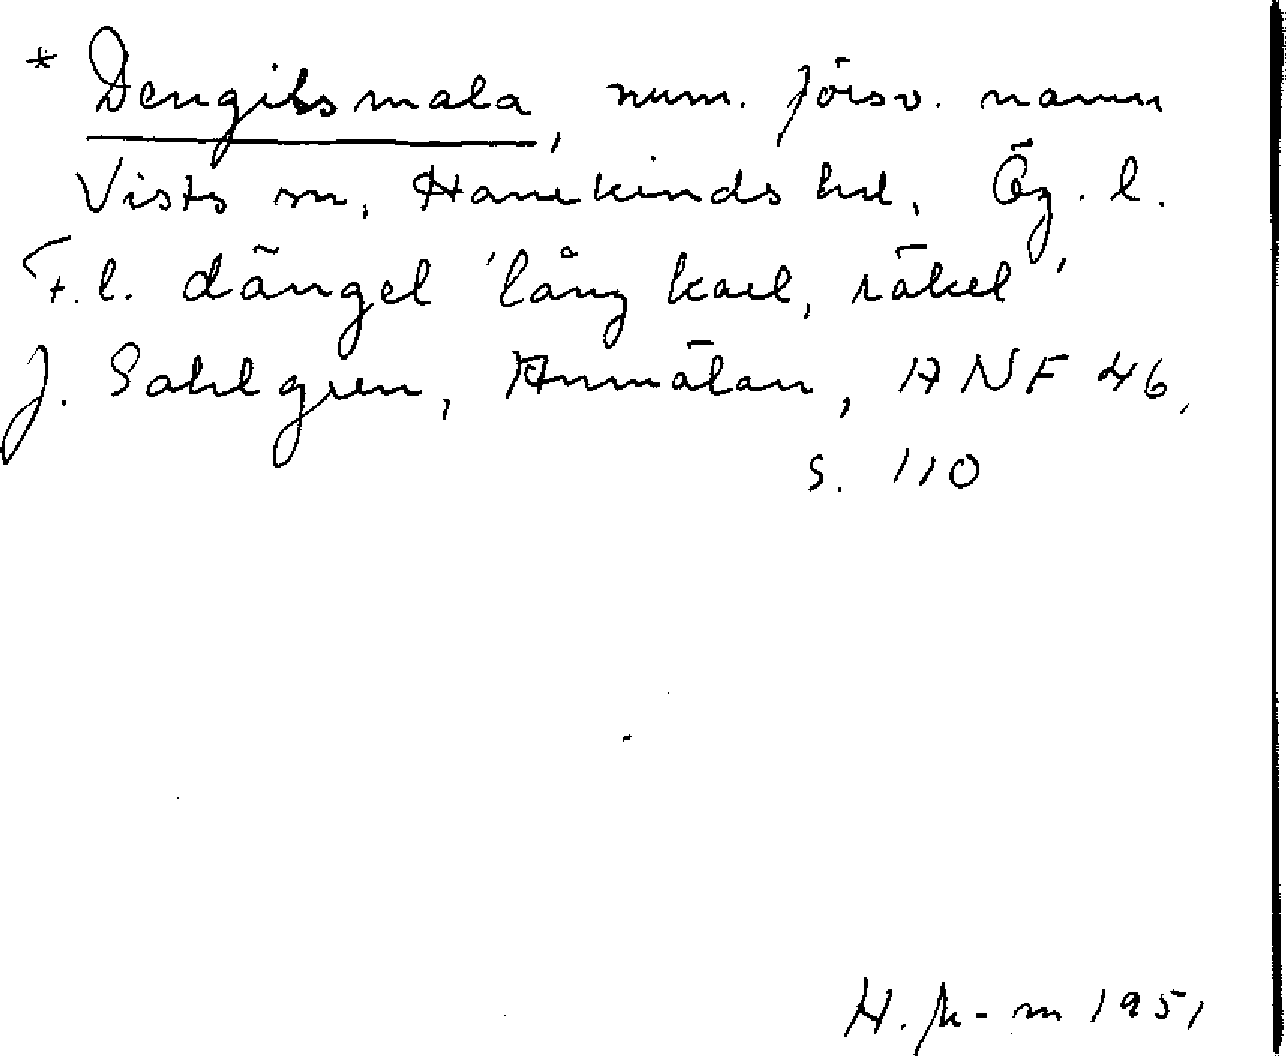 * Dengilsmala, num. försv. namn
Vists sn, Hanekinds hd, Ög. l.
F.l. dängel 'lång karl, räkel'
J. Sahlgren, Anmälan, ANF 46,
s. 110
H. 1951